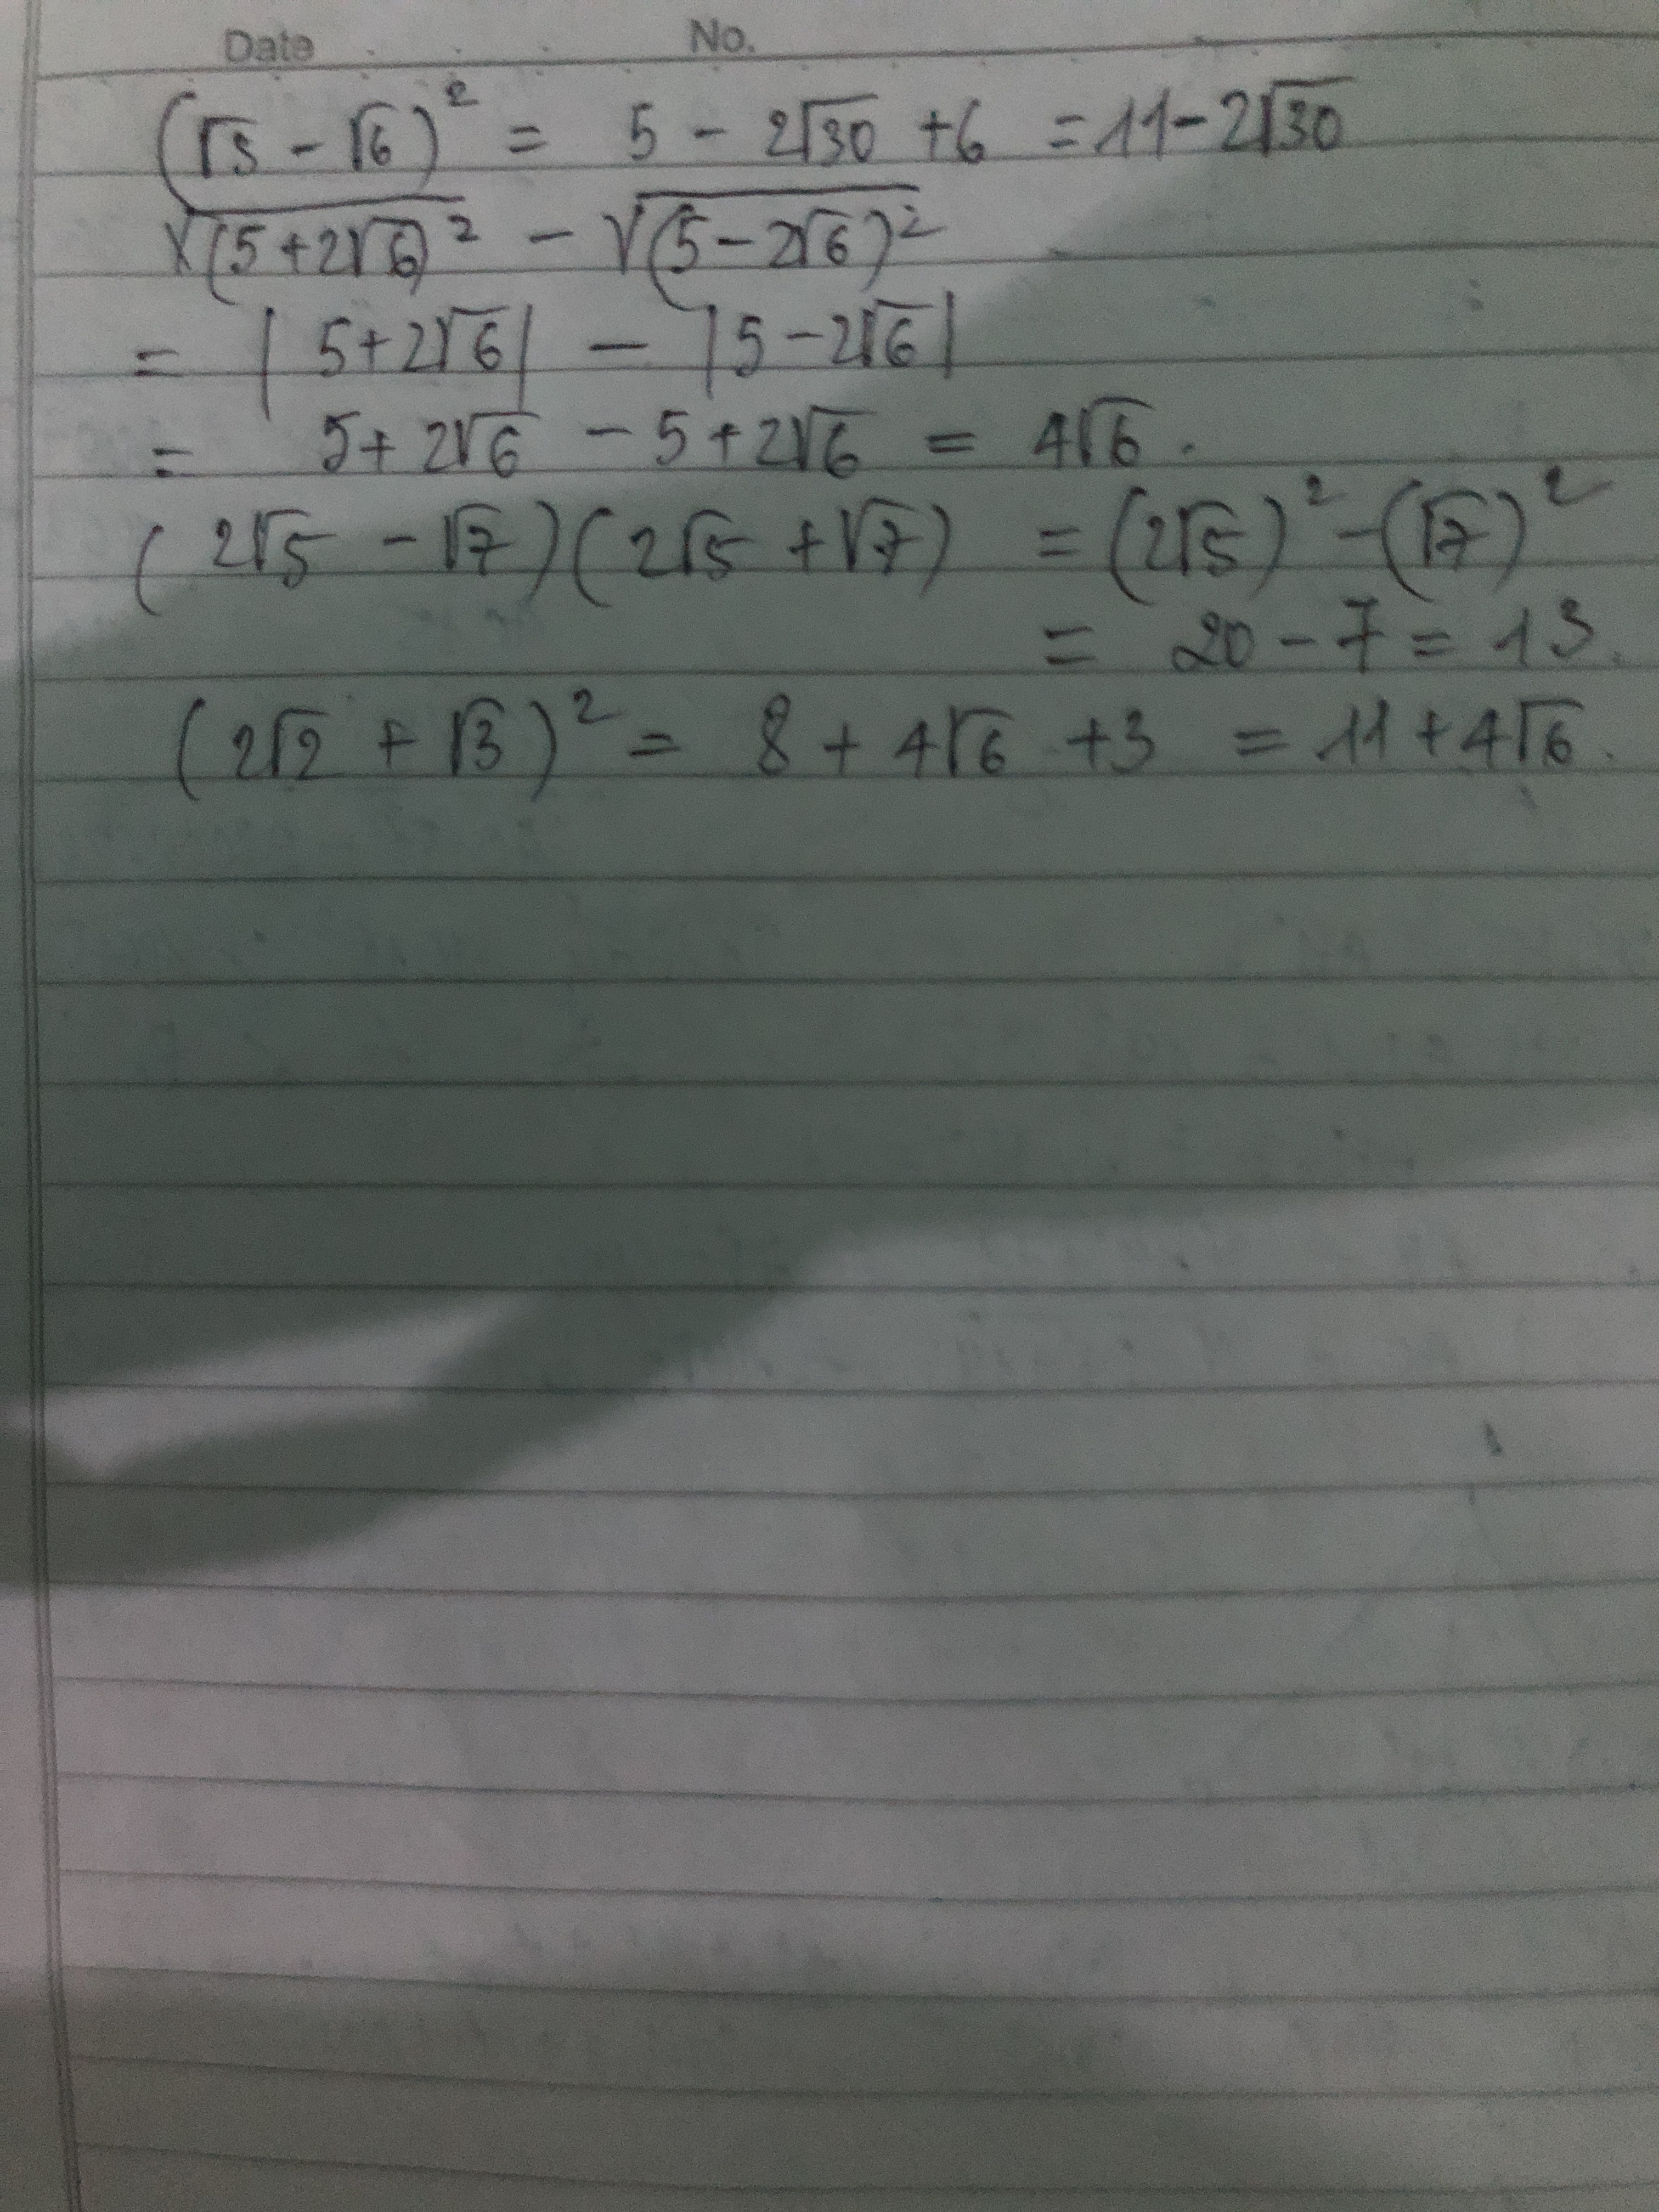 Date No.
(√5 - √6)² = 5 - 2√30 + 6 = 11 - 2√30
√(5 + 2√6)² - √(5 - 2√6)²
= |5 + 2√6| - |5 - 2√6|
= 5 + 2√6 - 5 + 2√6 = 4√6.
(2√5 - √7)(2√5 + √7) = (2√5)² - (√7)²
= 20 - 7 = 13.
(2√2 + √3)² = 8 + 4√6 + 3 = 11 + 4√6.